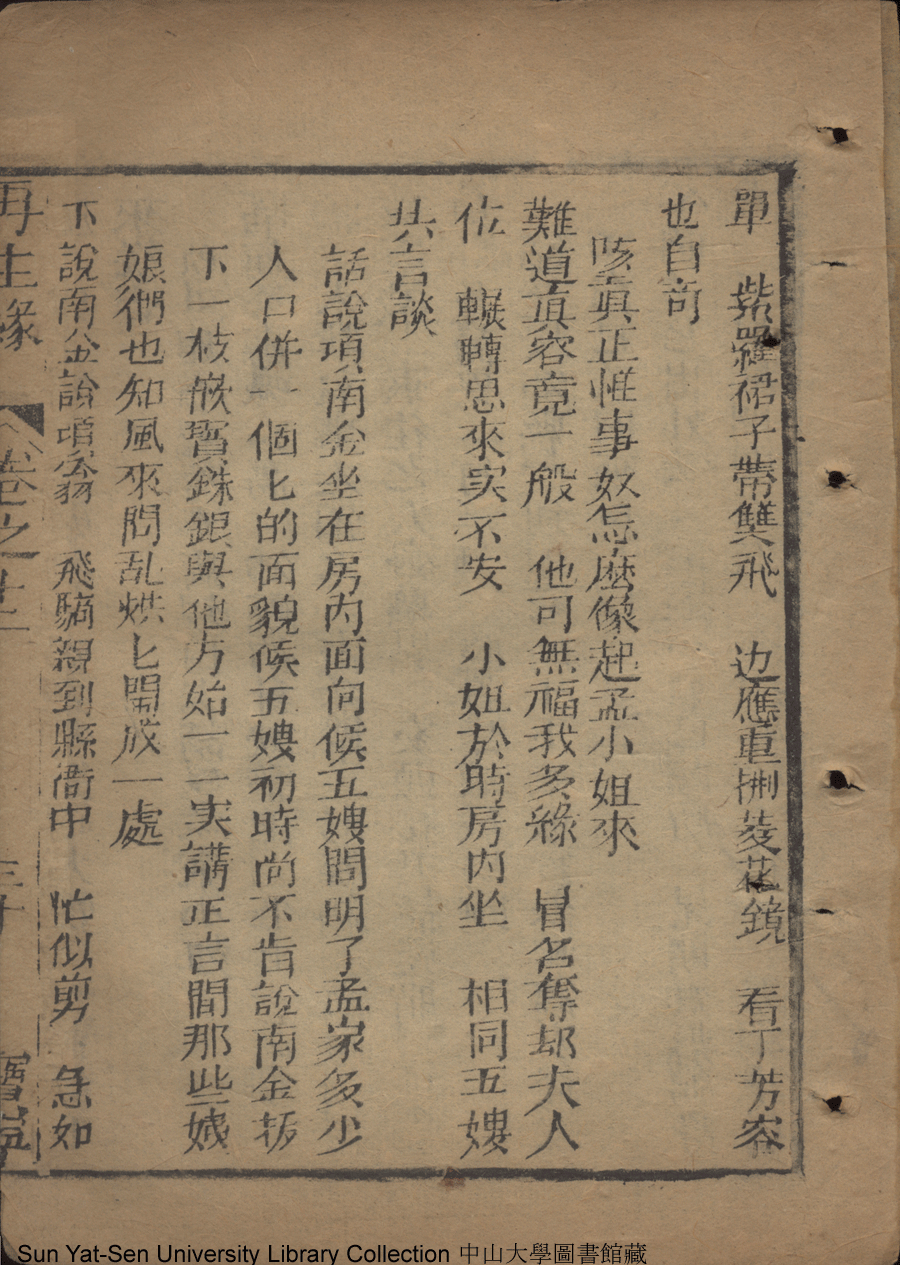 單 紫羅裙子帶雙飛 边應重捫菱花鏡 看了芳容
也自奇
咳真正惟事奴怎麼像起孟小姐來
難道真容竟一般 他可無福我多緣 冒名奪却夫人
位 輾轉思來实不安 小姐於時房內坐 相同五嫂
共言談
話說項南金坐在房內面向候五嫂間明了孟家多少
人口併一個匕的面貌候五嫂初時尚不肯說南金扳
下一枝嵌寶銖銀與他方始一一实講正言間那些娘
娘們也知風來問乱烘匕閙成一處
下說南金說項 飛騎親到縣衙中 忙似剪 急如
再生緣 卷之十二 三十
Sun Yat-Sen University Library Collection 中山大學圖書館藏